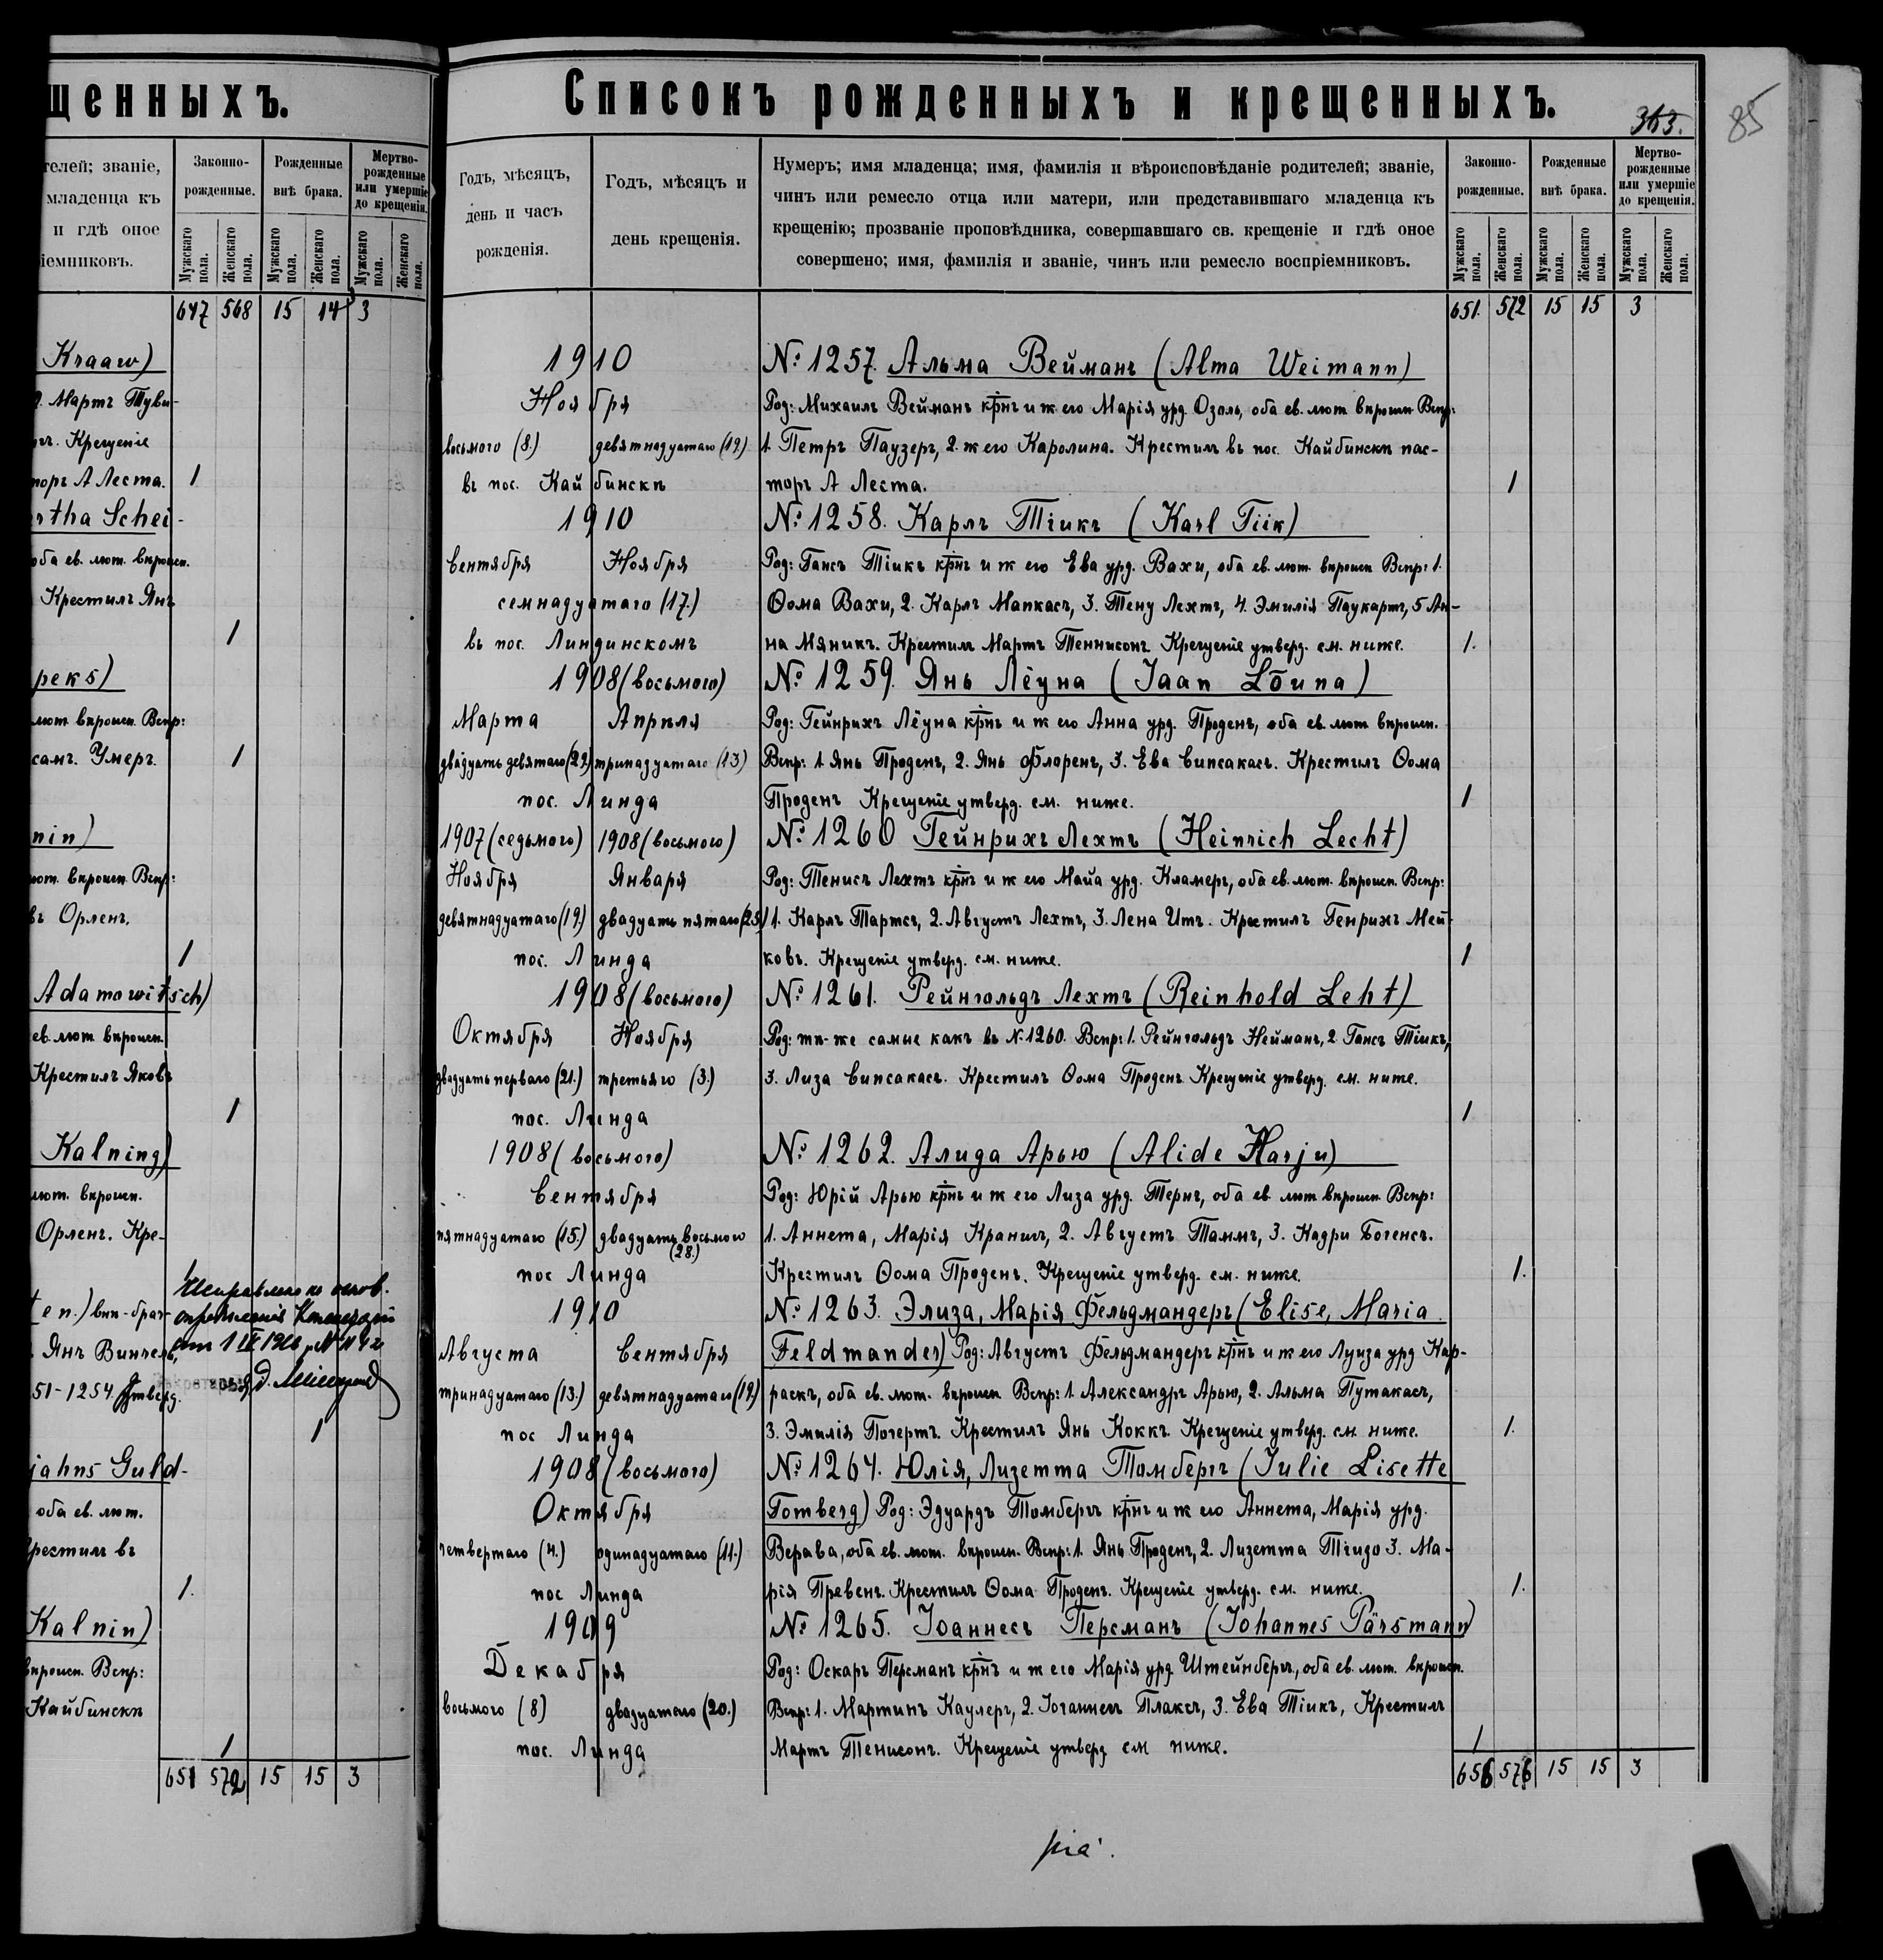 щенныхъ.
телей; званіе,
младенца къ
и гдѣ оное
іемниковъ.
Законно-
рожденные.
Рожденные
внѣ брака.
Мертво-
рожденные
или умершіе
до крещенія.
Мужскаго пола.
Женскаго пола.
Мужскаго пола.
Женскаго пола.
Мужскаго пола.
Женскаго пола.
647 568 15 14 3
Kraaw)
Мартъ Туви-
Крещеніе
торъ А Леста. 1
rtha Schei-
оба ев. лют. вѣроисп.
Крестилъ Янъ
1
peks)
лют вѣроисп. Вспр:
самъ. Умеръ. 1
nin)
лют. вѣроисп. Вспр:
въ Орлен.
1
Adamowitsch)
ев. лют вѣроисп.
Крестилъ Яковъ
1
Kalning)
лют. вѣроисп.
Орлен. Кре-
en.) внѣ-брач
Янъ Винтель,
51-1254 утверд.
1
jahns Guld-
оба ев. лют.
Крестилъ въ
1.
Kalnin)
вѣроисп. Вспр:
Кайбинскѣ
1
651 572 15 15 3
Списокъ рожденныхъ и крещенныхъ.
363.
85
Годъ, мѣсяцъ,
день и часъ
рожденія.
Годъ, мѣсяцъ и
день крещенія.
Нумеръ; имя младенца; имя, фамилія и вѣроисповѣданіе родителей; званіе,
чинъ или ремесло отца или матери, или представившаго младенца къ
крещенію; прозваніе проповѣдника, совершавшаго св. крещеніе и гдѣ оное
совершено; имя, фамилія и званіе, чинъ или ремесло воспріемниковъ.
Законно-
рожденные.
Рожденные
внѣ брака.
Мертво-
рожденные
или умершіе
до крещенія.
Мужскаго пола.
Женскаго пола.
Мужскаго пола.
Женскаго пола.
Мужскаго пола.
Женскаго пола.
651. 572 15 15 3
1910 № 1257. Альма Вейманъ (Alma Weimann)
Ноября Род: Михаилъ Вейманъ крнъ и ж его Марія урд. Озоль, оба ев. лют вѣроисп Вспр:
восьмого (8.) девятнадцатаго (19.) 1. Петръ Паузеръ, 2. ж его Каролина. Крестилъ въ пос. Кайбинскѣ пас-
въ пос. Кайбинскѣ торъ А Леста. 1
1910 № 1258. Карлъ Тіикъ (Karl Tiik)
Сентября Ноября Род: Гансъ Тіикъ крнъ и ж его Ева урд. Вахи, оба ев. лют. вѣроисп Вспр: 1.
семнадцатаго (17.) Ѳома Вахи, 2. Карлъ Мапкасъ, 3. Тену Лехтъ, 4. Эмилія Паукартъ, 5 Ан-
въ пос. Линдинскомъ на Мяникъ. Крестилъ Мартъ Теннисонъ Крещеніе утверд. см. ниже. 1.
1908 (восьмого) № 1259. Янъ Лёуна (Jaan Lõuna)
Марта Апрѣля Род: Гейнрихъ Лёуна крнъ и ж его Анна урд. Проденъ, оба ев. лют вѣроисп.
двадцать девятаго (29) тринадцатаго (13) Вспр: 1. Янъ Проденъ, 2. Янъ Флоренъ, 3. Ева Сипсакасъ. Крестилъ Ѳома
пос. Линда Проденъ Крещеніе утверд. см. ниже. 1
1907 (седьмого) 1908 (восьмого) № 1260 Гейнрихъ Лехтъ (Heinrich Lecht)
Ноября Января Род: Тенисъ Лехтъ крнъ и ж его Майа урд. Кламеръ, оба ев. лют. вѣроисп. Вспр:
девятнадцатаго (19.) двадцать пятаго (25.) 1. Карлъ Тартсъ, 2. Августъ Лехтъ, 3. Лена Итъ. Крестилъ Генрихъ Мей-
пос. Линда ковъ. Крещеніе утверд. см. ниже. 1
1908 (восьмого) № 1261. Рейнгольдъ Лехтъ (Reinhold Leht)
Октября Ноября Род: тѣ-же самые какъ въ № 1260. Вспр: 1. Рейнгольдъ Нейманъ, 2 Гансъ Тіикъ,
двадцать перваго (21.) третьяго (3.) 3. Лиза Сипсакасъ. Крестилъ Ѳома Проденъ Крещеніе утверд. см. ниже.
пос. Линда 1
1908 (восьмого) № 1262. Алида Арью (Alide Harju)
Сентября Род: Юрій Арью крнъ и ж его Лиза урд. Тернъ, оба ев. лют вѣроисп Вспр:
пятнадцатаго (15.) двадцать восьмого (28.) 1. Аннета, Марія Кранигъ, 2. Августъ Таммъ, 3. Кадри Богенсъ.
пос Линда Крестилъ Ѳома Проденъ. Крещеніе утверд. см. ниже. 1.
1910 № 1263. Элиза, Марія Фельдмандеръ (Elise, Maria
Августа Сентября Feldmander) Род: Августъ Фельдмандеръ крнъ и ж его Луиза урд Кар-
тринадцатаго (13.) девятнадцатаго (19) раскъ, оба ев. лют. вѣроисп Вспр: 1. Александръ Арью, 2. Альма Путакасъ,
пос Линда 3. Эмилія Погертъ. Крестилъ Янъ Коккъ. Крещеніе утверд. см. ниже. 1.
1908 (восьмого) № 1264. Юлія, Лизетта Томбергъ (Julie Lisette
Октября Tomberg) Род: Эдуардъ Томбергъ крнъ и ж его Аннета, Марія урд.
четвертаго (4.) одинадцатаго (11.) Верава, оба ев. лют. вѣроисп. Вспр: 1. Янъ Проденъ, 2. Лизетта Тіидо 3. Ма-
пос Линда рія Превенъ. Крестилъ Ѳома Проденъ. Крещеніе утверд. см. ниже. 1.
1909 № 1265. Іоаннесъ Персманъ (Johannes Pärsmann)
Декабря Род: Оскаръ Персманъ крнъ и ж его Марія урд. Штейнбергъ, оба ев. лют. вѣроисп.
восьмого (8) двадцатаго (20.) Вспр: 1. Мартинъ Каулеръ, 2. Іоганнесъ Плаксъ, 3. Ева Тіикъ, Крестилъ
пос. Линда Мартъ Тенисонъ. Крещеніе утверд см ниже. 1
656 576 15 15 3